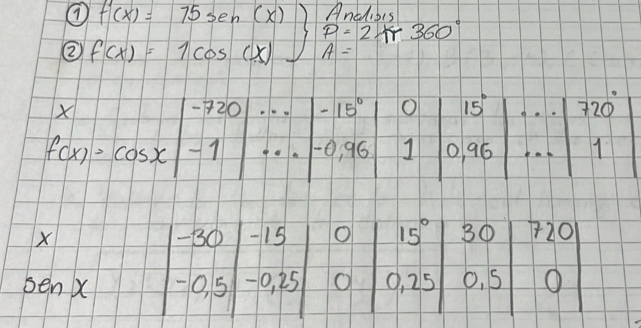 ① f(x) = 75 sen (x) } Analisis
P = 2π 360°
② f(x) = 1 cos (x) A =
x | -720 | ... | -15° | 0 | 15° | ... | 720°
f(x) = cos x | -1 | ... | -0,96 | 1 | 0,96 | ... | 1
x | -30 | -15 | 0 | 15° | 30 | 720
sen x | -0,5 | -0,25 | 0 | 0,25 | 0,5 | 0